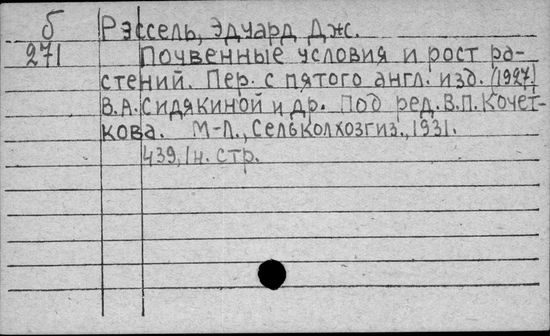 б Рэссель, Эдуард Дж.
271 Почвенные условия и рост ра-
стений. Пер. с пятого англ. изд. (1927)
В.А. Сидякиной и др. Под ред. В.П. Кочет-
кова. М-Л., Сельколхозгиз., 1931.
439, 1н. стр.